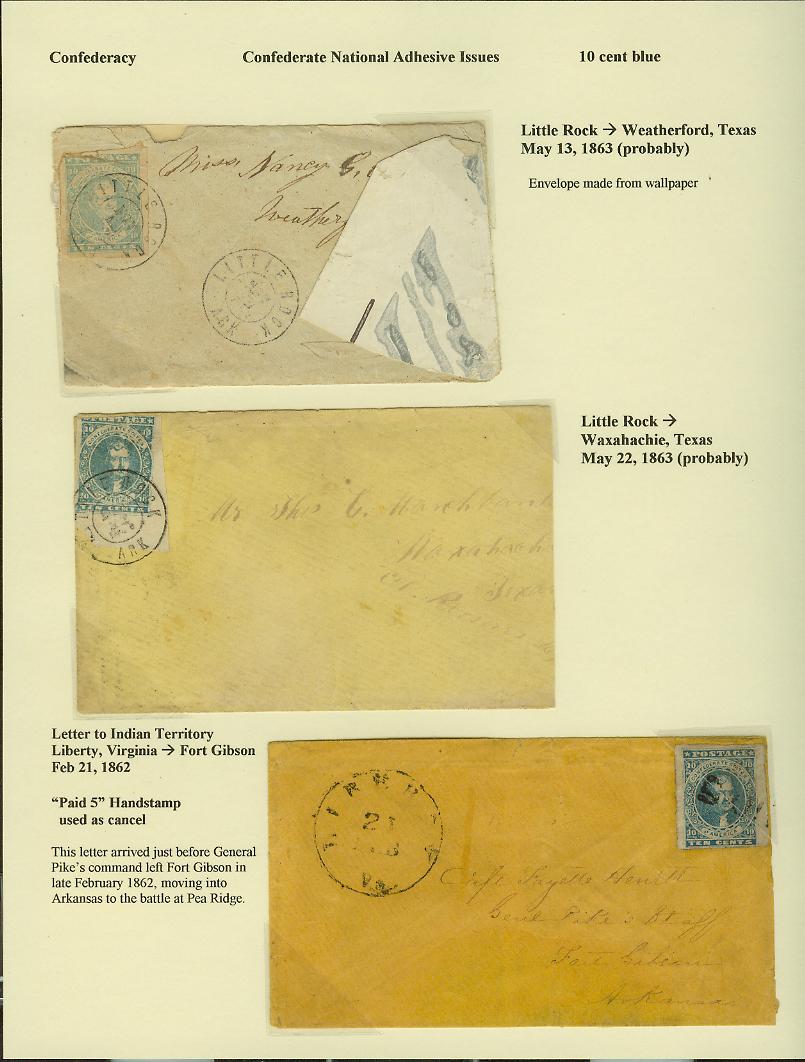 Confederacy Confederate National Adhesive Issues 10 cent blue
Little Rock → Weatherford, Texas
May 13, 1863 (probably)
Envelope made from wallpaper
Miss Nancy
Weather
LITTLE ROCK
TEN CENTS
LITTLE ROCK ARK
Little Rock →
Waxahachie, Texas
May 22, 1863 (probably)
POSTAGE
10 10
CONFEDERATE STATES
OF AMERICA
TEN CENTS
LITTLE ROCK ARK
Mr Thos C. Marchbank
Waxahach
Texa
Letter to Indian Territory
Liberty, Virginia → Fort Gibson
Feb 21, 1862
“Paid 5” Handstamp
used as cancel
This letter arrived just before General
Pike’s command left Fort Gibson in
late February 1862, moving into
Arkansas to the battle at Pea Ridge.
POSTAGE
10 10
CONFEDERATE STATES
OF AMERICA
10 10
TEN CENTS
LIBERTY
21
FEB
Va
Capt Fayette Hewitt
Genl Pike's Staff
Fort Gibson
Arkansas